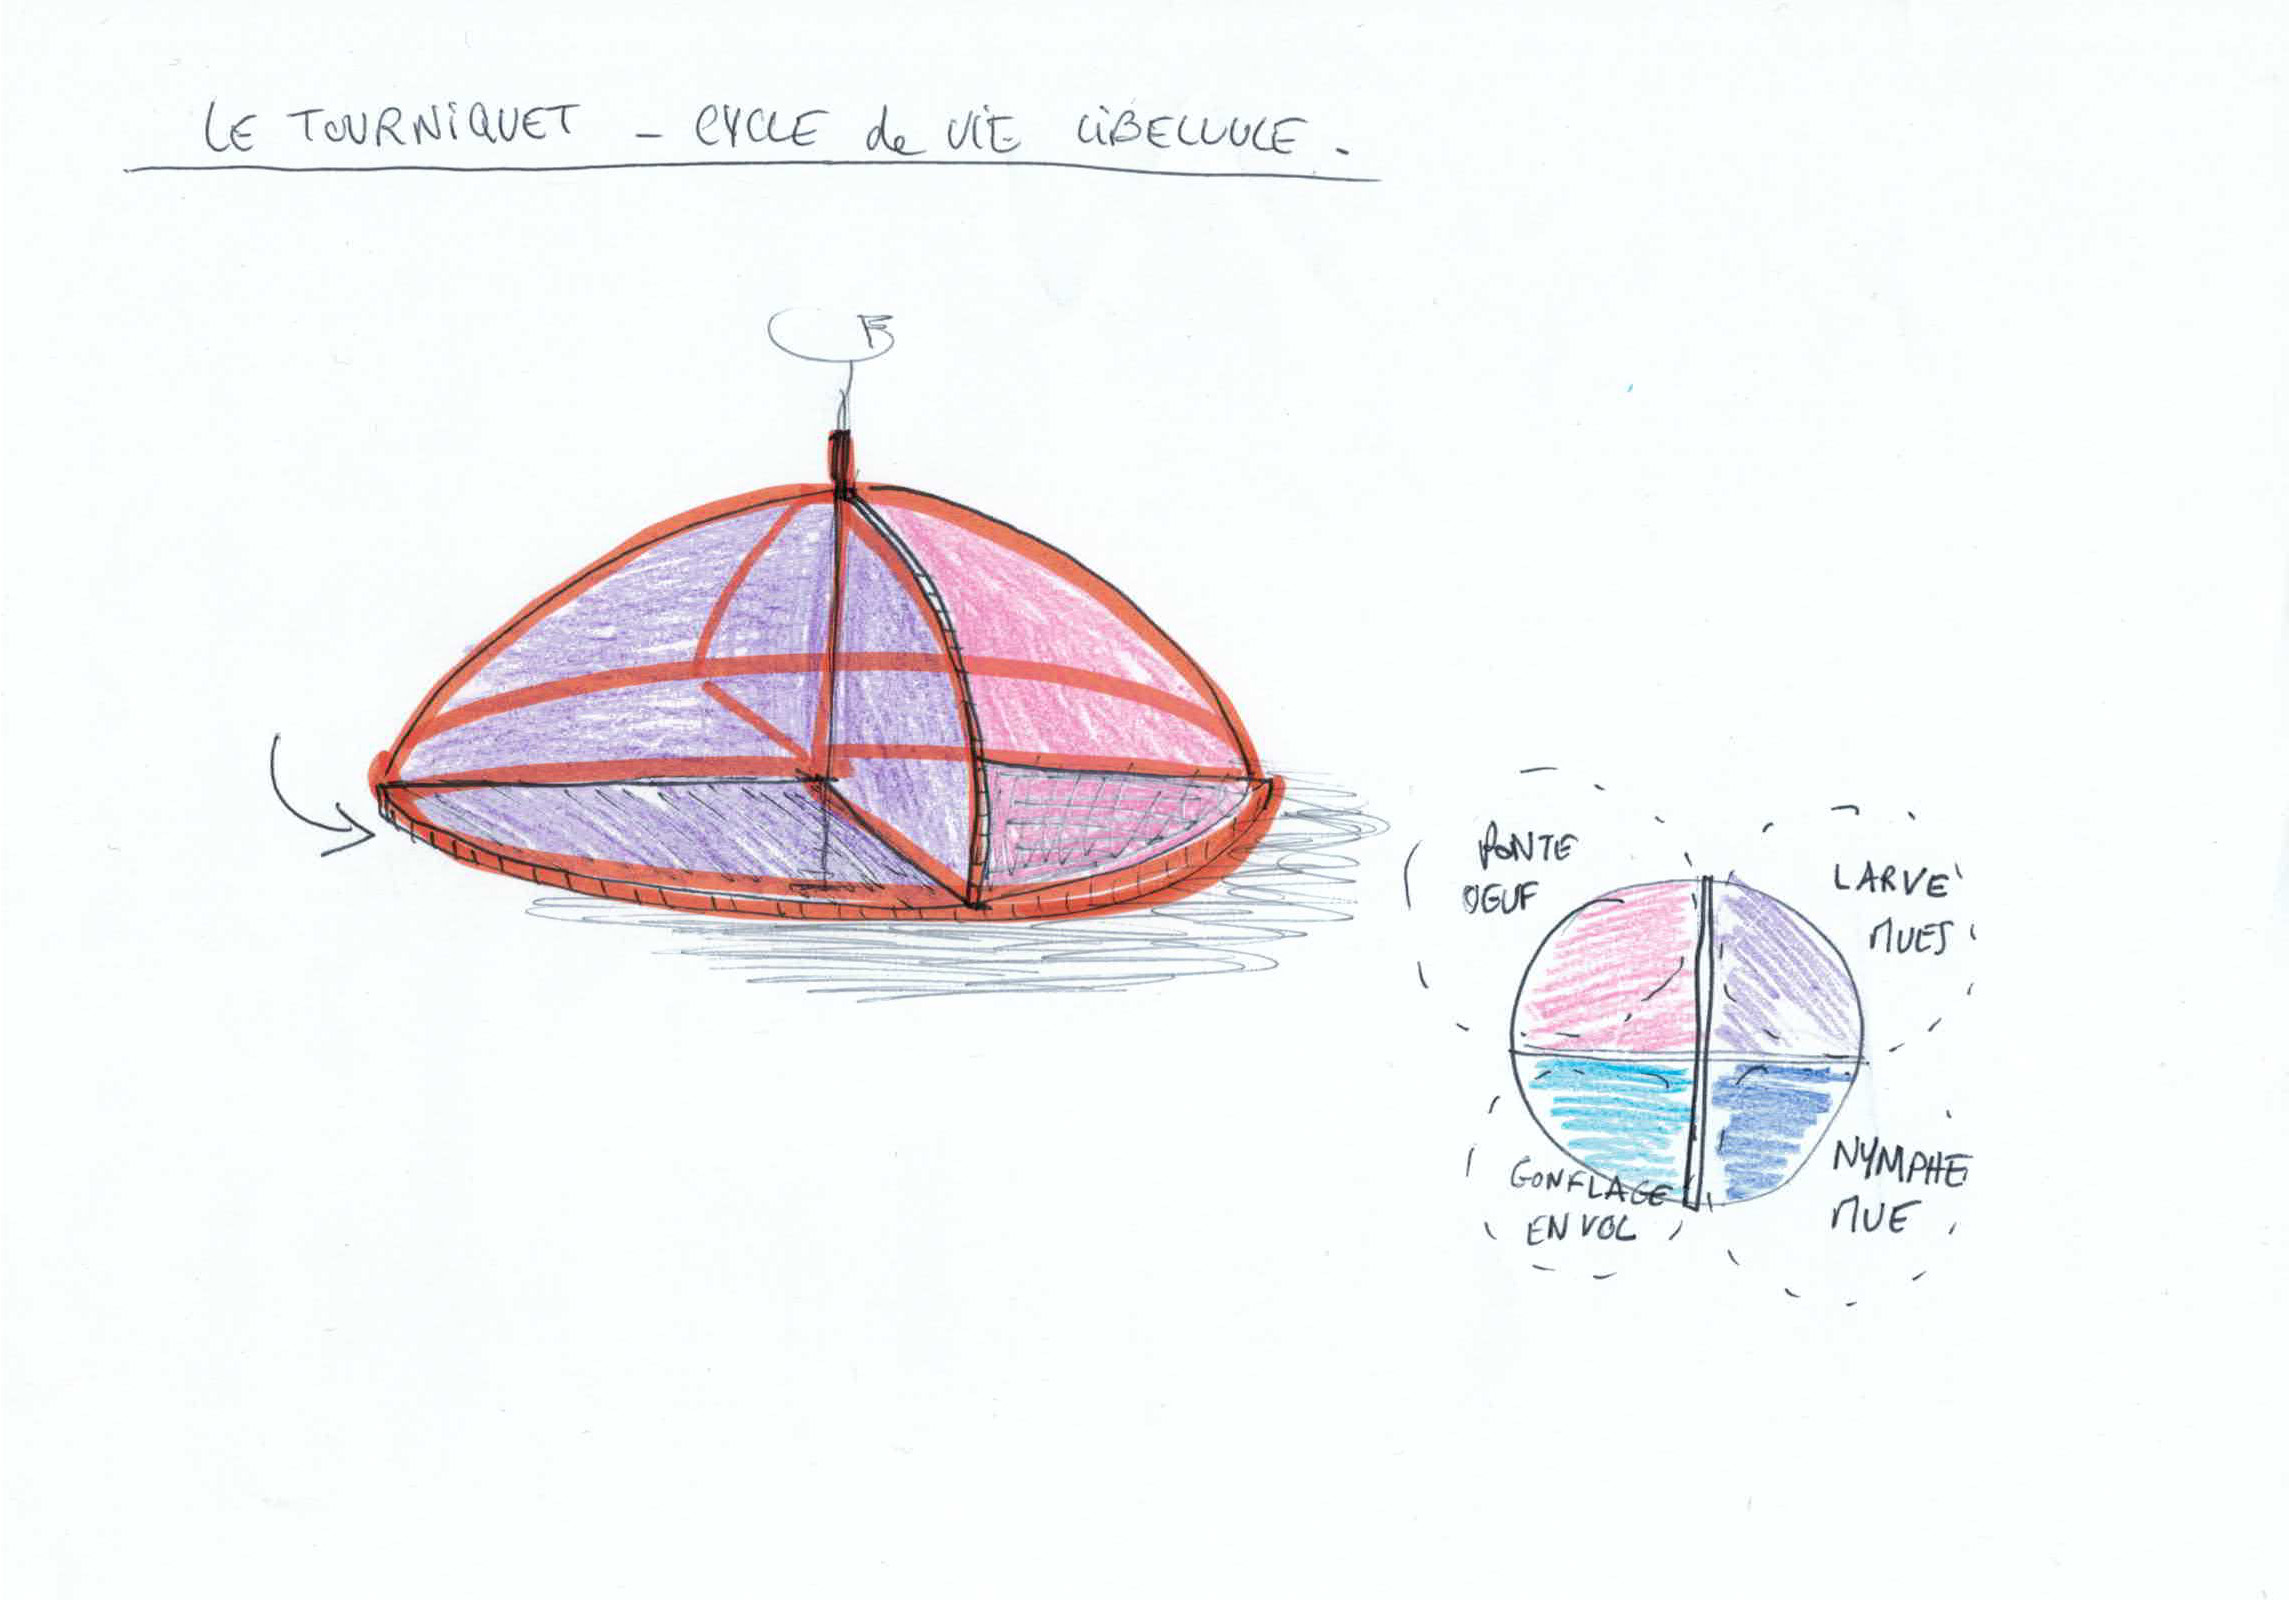 LE TOURNIQUET - CYCLE de VIE LIBELLULE.
PONTE
OEUF
LARVE
MUES
GONFLAGE
ENVOL
NYMPHE
MUE